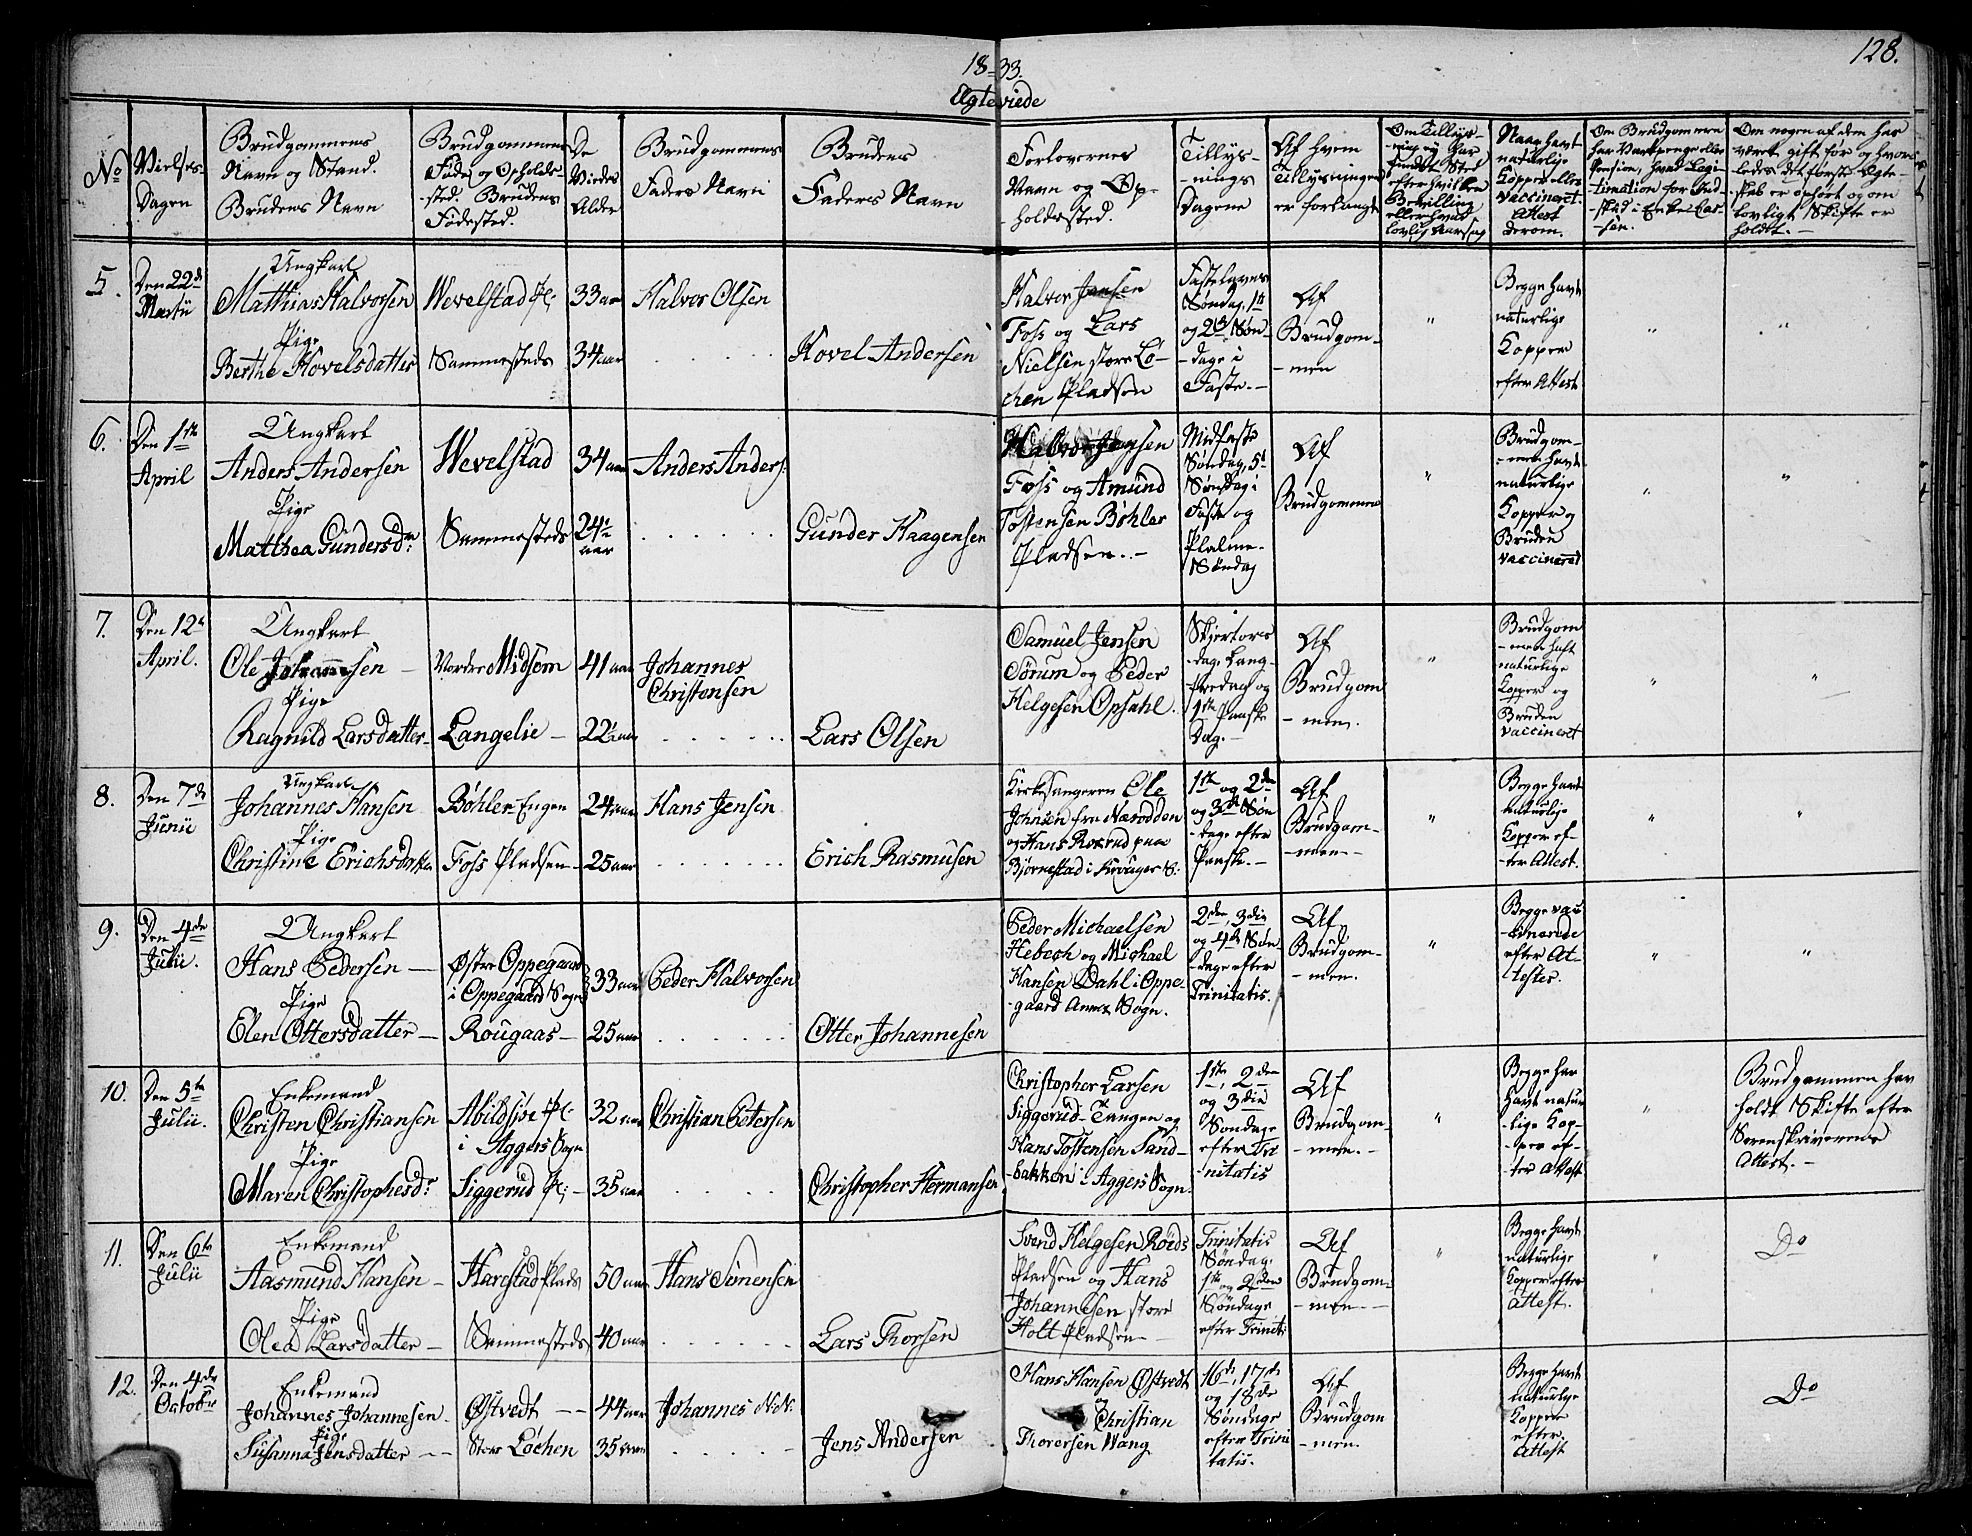 128.
18-33.
Egteviede
No
Vielses-
Dagen
Brudgommens
Navn og Stand.
Brudens Navn
Brudgommens
Føde og Opholds-
sted. Brudens
Fødested.
De
Viedes
Alder
Brudgommens
Faders Navn
Brudens
Faders Navn
Forlovernes
Navn og Op-
holdssted.
Tillys-
-nings
Dagene
Af hvem
Tillysningen
er forlangt
Om Tillys-
-ning ey har
fundet Sted
efter hvilken
Bevilling
eller hvad
lovlig Aarsag
Naar havt
naturlige
Kopper eller
vaccineret.
Attest
derom.
Om Brudgommen
har Vartpenge eller
Pension, hvad Legi-
-timation for Ind-
-skud i Enke Cas-
-sen.
Om nogen af dem har
været gift før og hvor-
ledes det første Ægte-
skab er ophørt og om
lovligt Skifte er
holdt.-
5.
Den 22de
Martii
Ungkarl
Mathias Halvorsen
Pige
Berthe Hovelsdatter
Wevelstad Pl:
Sammesteds
33 aar
34 aar
Halvor Olsen
Hovel Andersen
Halvor Jensen
Foss og Lars
Nielsen store Lø-
chen Pladsen
Fastelavns
Søndag, 1st
og 2de Søn-
-dage i
Faste.-
Af
Brudgom-
-men
"
Begge havt
naturlige
Kopper
efter Attest
"
"
6.
Den 1ste
April
Ungkarl
Anders Andersen
Pige
Matthea Gundersdr
Wevelstad
Sammesteds
34 aar
24½
aar
Anders Anders:
Gunder Haagensen
Halvor Jensen
Foss og Amund
Tostensen Bøhler
Pladsen.-
Midfaste
Søndag, 5te
Søndag i
Faste og
Palme-
Søndag
Af
Brudgommen
"
Brudgom-
-men havt
naturlige
Kopper og
Bruden
vaccineret
"
"
7.
Den 12te
April.
Ungkarl
Ole Johannesen -
Pige
Ragnild Larsdatter-
Nordre Midsem
Langelie -
41 aar
22½ aar
Johannes
Christensen
Lars Olsen
Samuel Jensen
Sørum og Peder
Helgesen Opsahl.
Skjertors-
-dag, Lang-
-fredag og
1ste Paaske
Dag.-
Af
Brudgom
-men.
"
Brudgom
-men haft
naturlige
Kopper og
Bruden
vaccineret
"
"
8.
Den 7de
Junii
Ungkarl
Johannes Hansen
Pige
Christine Erichsdatter
Bøhler-Engen
Foss Pladsen-
24 aar
25 aar
Hans Jensen
Erich Rasmusen
Kirkesangeren Ole
Johnsen fra Næsodden
og Hans Rosrud paa
Bjørnestad i Kraager S:
1ste og 2den
og 3die Søn
-dage efter
Paaske.-
Af
Brudgom-
-men-
"
Begge havt
naturlige
Kopper ef-
-ter Attest.
"
"
9.
Den 4de
Julii.
Ungkarl
Hans Pedersen -
Pige
Elen Ottersdatter -
Østre Oppegaard
i Oppegaard Sogn
Rougaas -
33 aar
25 aar
Peder Halvorsen
Otter Johannesen
Peder Michaelsen
Hebech og Michael
Hansen Dahl i Oppe-
-gaard Annex Sogn.
2den, 3die
og 4de Søn
-dage efter
Trinitatis.
Af
Brudgom-
-men.
"
Begge vac
-cinerede
efter At-
-tester.
"
"
10.
Den 5te
Julii.
Enkemand
Christen Christiansen
Pige
Maren Christophesdr
Abildsøe Pl:
i Aggers Sogn
Siggerud Pl: -
32 aar
35 aar
Christian Petersen
Christopher Hermansen
Christopher Larsen
Siggerud-Tangen og
Hans Tostensen Sand-
-bakken i Aggers Sogn.
1ste, 2den
og 3die
Søndage
efter Tri
-nitatis
Af
Brudgom-
-men.-
"
Begge har
havt natur
-lige Kop-
-per ef-
-ter Attest
"
Brudgommen har
holdt Skifte efter
Sorenskriverens
Attest.-
11.
Den 6te
Julii
Enkemand
Aasmund Hansen -
Pige
Olea Larsdatter -
Harestad Plads
Sammesteds
50 aar
40 aar
Hans Simensen
Lars Thorsen
Svend Helgesen Røids
Pladsen og Hans
Johannesen store
Holt Pladsen -
Trinitatis
Søndag,
1ste og 2den
Søndage
efter Triniti
Af
Brudgom-
-men -
"
Begge havt
naturlige
Kopper efter
Attest.
"
Do
12.
Den 4de
Octobr
Enkemand
Johannes Johannesen
Pige
Susanna Jensdatter --
Østvedt --
Store Løchen
44 aar
35 aar
Johannes N:N:
Jens Andersen
Hans Hansen Østvedt
Christian
Thoresen Wang
16de, 17de
og 18de
Søndage
efter Trini
tatis.
Af
Brudgom
-men.
Begge havt
naturlige
Kopper
efter
Attest
Do